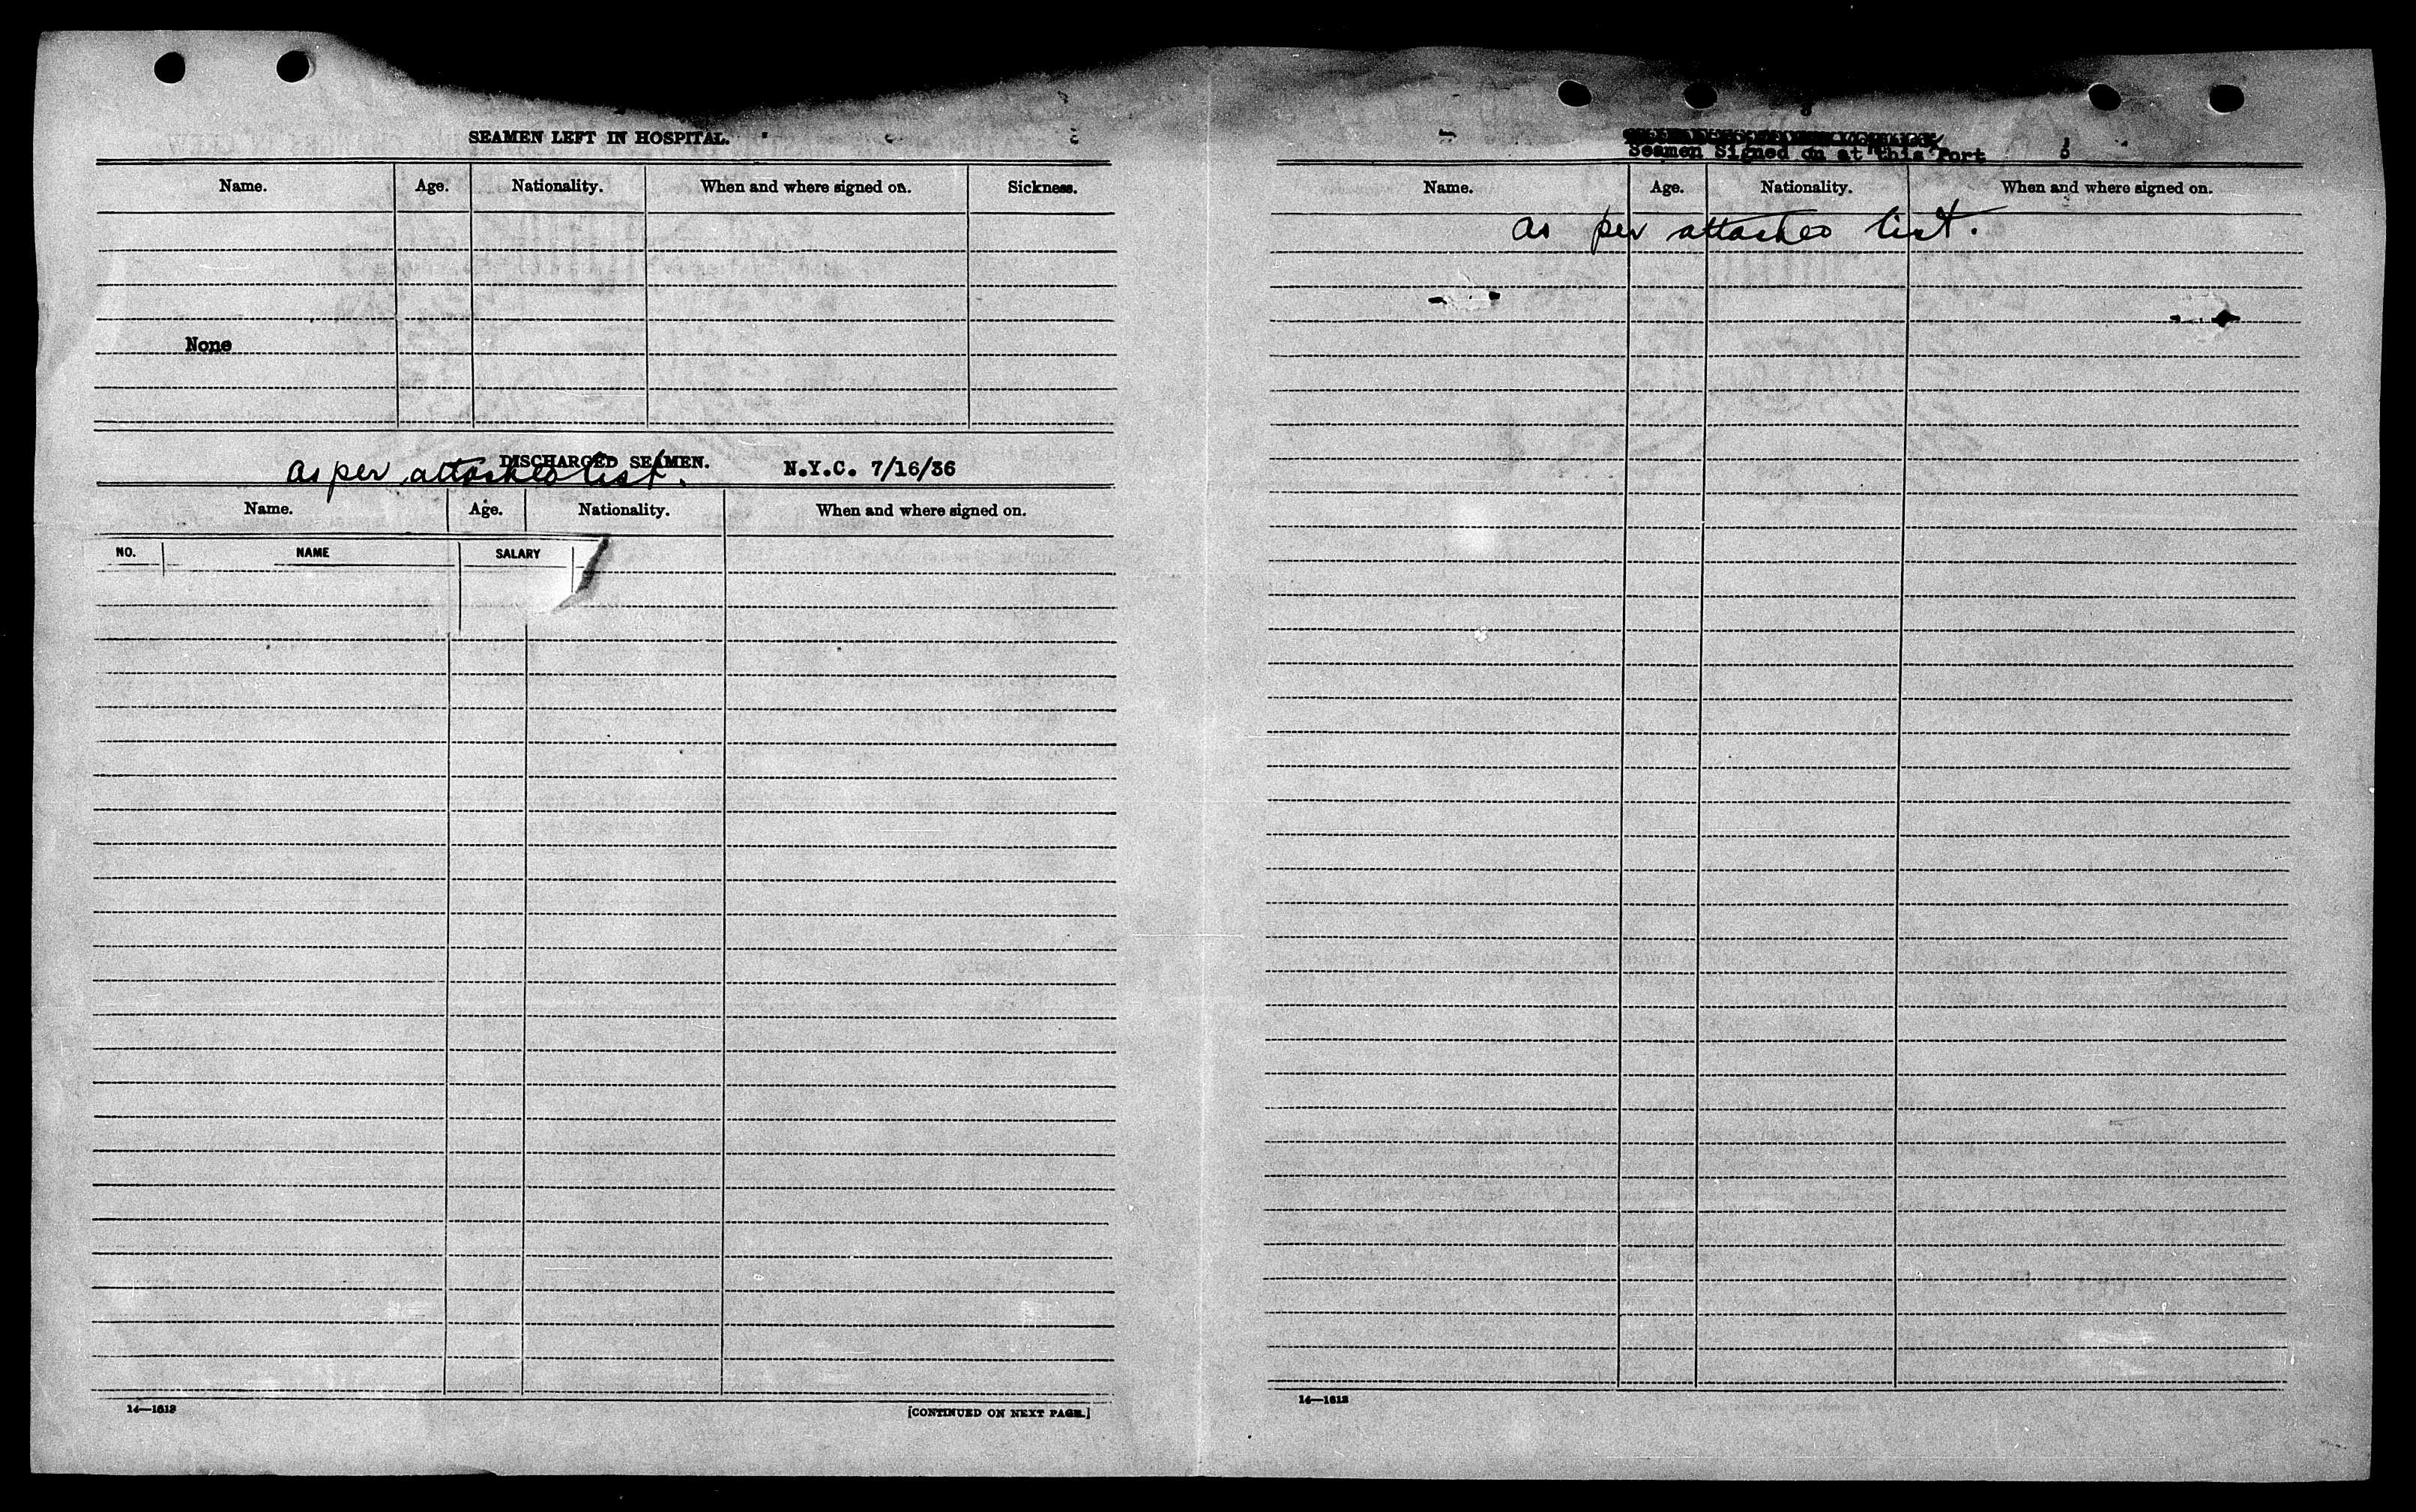 SEAMEN LEFT IN HOSPITAL.
Name. Age. Nationality. When and where signed on. Sickness.
None
DISCHARGED SEAMEN. N.Y.C. 7/16/36
as per attached list.
Name. Age. Nationality. When and where signed on.
NO. NAME SALARY
14—1613
[CONTINUED ON NEXT PAGE.]
Seamen Signed on at this Port
Name. Age. Nationality. When and where signed on.
as per attached list.
14—1613